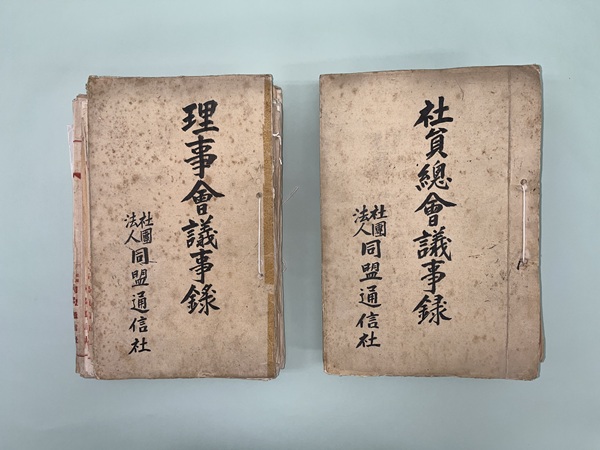 理事會議事録
社團
法人
同盟通信社
社員總會議事録
社團
法人
同盟通信社